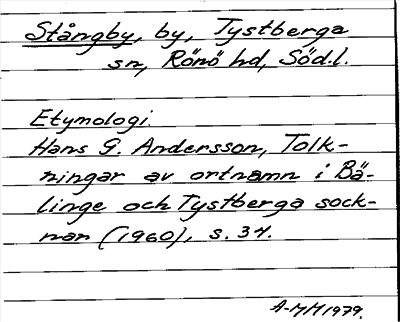 Stångby, by, Tystberga
sn, Rönö hd, Söd.l.
Etymologi
Hans G. Andersson, Tolk-
ningar av ortnamn i Bä-
linge och Tystberga sock-
nar (1960), s. 34.
A-MM 1979.